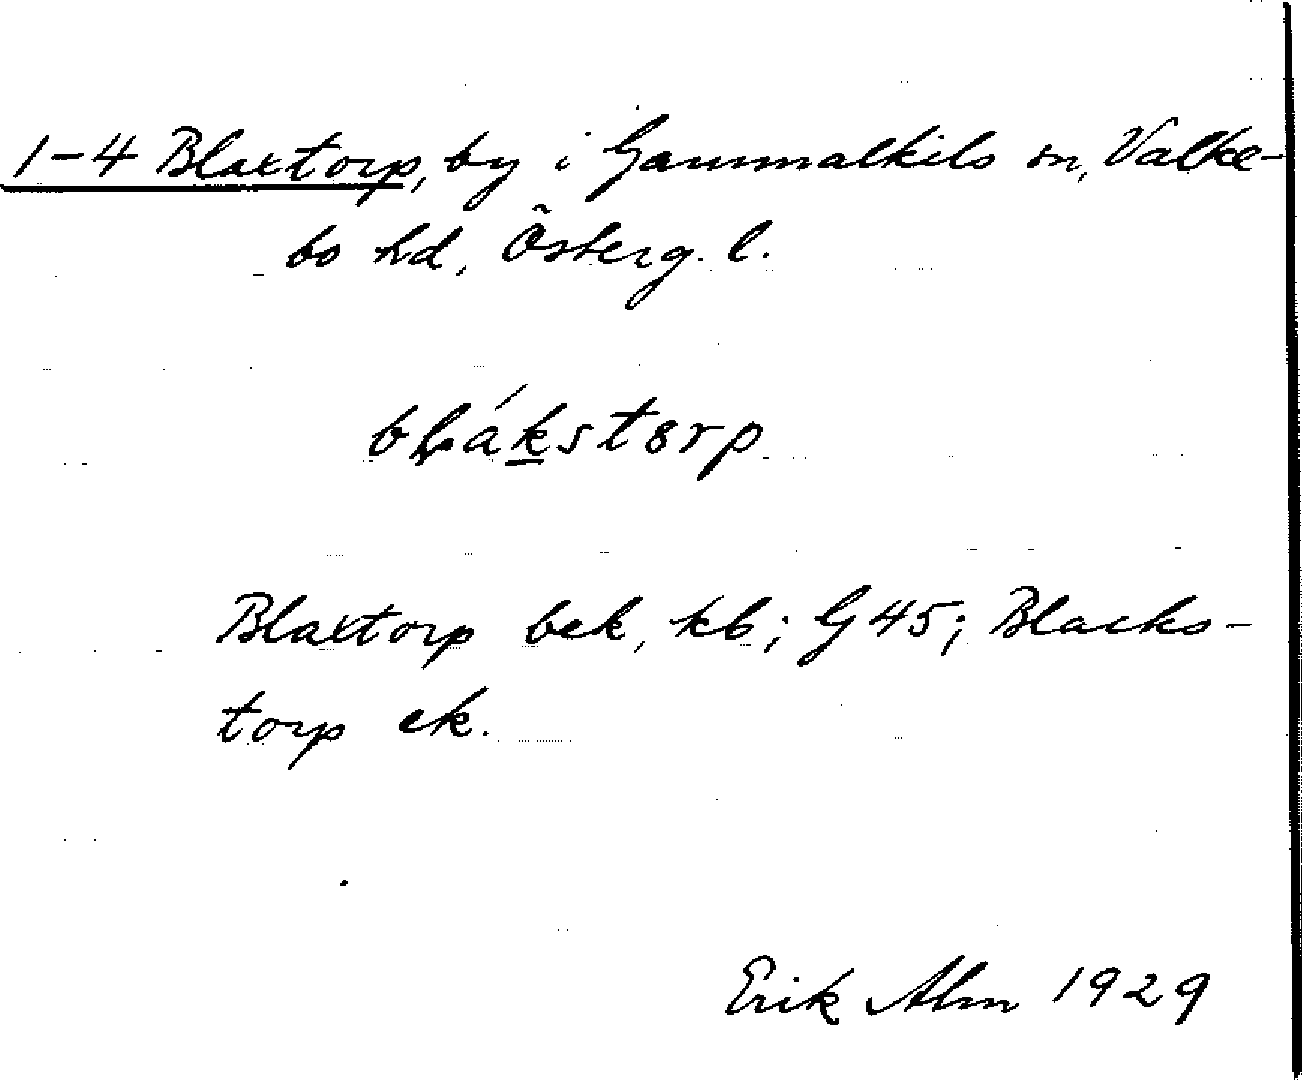 1-4 Blaxtorp, by i Gammalkils sn, Valke-
bo hd, Österg. l.
bɫákstorp
Blaxtorp bek, kb; G45; Blacks-
torp ek.
Erik Alm 1929